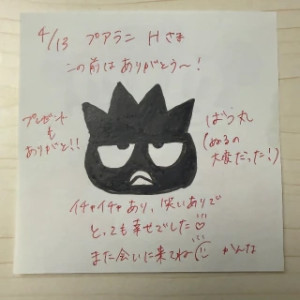 4/13 プアラニ Hさま
この前は ありがとう〜!
プレゼント
も
ありがと!!
ばつ丸
(ぬるの
大変だった!)
イチャイチャあり、笑いありで
とっても幸せでした♡
また会いに来てね☺ かんな